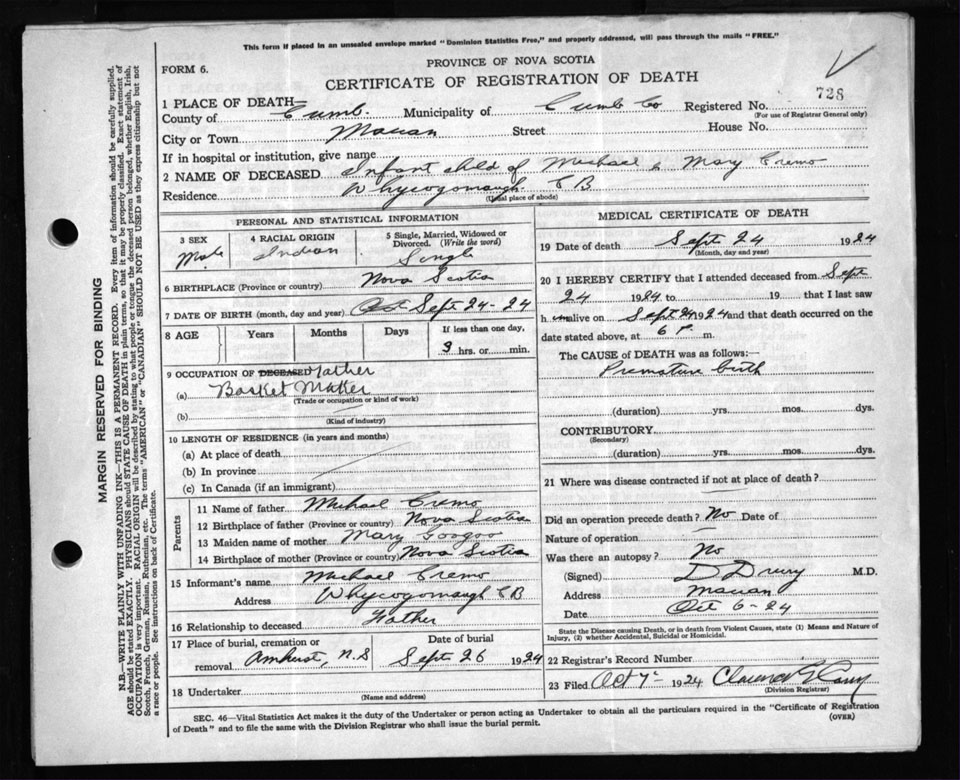 This form if placed in an unsealed envelope marked "Dominion Statistics Free," and properly addressed, will pass through the mails "FREE."
PROVINCE OF NOVA SCOTIA
FORM 6.
CERTIFICATE OF REGISTRATION OF DEATH
728
1 PLACE OF DEATH
County of Cumb. Municipality of Cumb Co Registered No.
(For use of Registrar General only)
City or Town Maccan Street House No.
If in hospital or institution, give name
2 NAME OF DECEASED Infant child of Michael & Mary Cremo
Residence Whycogomaugh CB
(Usual place of abode)
PERSONAL AND STATISTICAL INFORMATION
3 SEX Male
4 RACIAL ORIGIN Indian
5 Single, Married, Widowed or Divorced. (Write the word) Single
6 BIRTHPLACE (Province or country) Nova Scotia
7 DATE OF BIRTH (month, day and year) Oct Sept 24-24
8 AGE Years Months Days If less than one day,
9 hrs. or min.
9 OCCUPATION OF DECEASED Father
(a) Basket Maker
(Trade or occupation or kind of work)
(b)
(Kind of industry)
10 LENGTH OF RESIDENCE (in years and months)
(a) At place of death
(b) In province
(c) In Canada (if an immigrant)
Parents
11 Name of father Michael Cremo
12 Birthplace of father (Province or country) Nova Scotia
13 Maiden name of mother Mary Googoo
14 Birthplace of mother (Province or country) Nova Scotia
15 Informant's name Michael Cremo
Address Whycogomaugh CB
16 Relationship to deceased Father
17 Place of burial, cremation or removal Amherst, N.S
Date of burial Sept 26 1924
18 Undertaker
(Name and address)
MEDICAL CERTIFICATE OF DEATH
19 Date of death Sept 24 1924
(Month, day and year)
20 I HEREBY CERTIFY that I attended deceased from Sept
24 1924 to 19 that I last saw
h im alive on Sept 24 1924 and that death occurred on the
date stated above, at 6 P. m.
The CAUSE OF DEATH was as follows:
Premature birth
(duration) yrs. mos. dys.
CONTRIBUTORY
(Secondary)
(duration) yrs. mos. dys.
21 Where was disease contracted if not at place of death?
Did an operation precede death? No Date of
Nature of operation
Was there an autopsy? No
(Signed) D Drury M.D.
Address Maccan
Date Oct 6-24
State the Disease causing Death, or in death from Violent Causes, state (1) Means and Nature of
Injury, (2) whether Accidental, Suicidal or Homicidal.
22 Registrar's Record Number
23 Filed Oct 7 1924
(Division Registrar)
SEC. 46—Vital Statistics Act makes it the duty of the Undertaker or person acting as Undertaker to obtain all the particulars required in the "Certificate of Registration
of Death" and to file the same with the Division Registrar who shall issue the burial permit.
(OVER)
MARGIN RESERVED FOR BINDING
N.B.—WRITE PLAINLY WITH UNFADING INK—THIS IS A PERMANENT RECORD. Every item of information should be carefully supplied.
AGE should be stated EXACTLY. PHYSICIANS should STATE CAUSE OF DEATH in plain terms, so that it may be properly classified. Exact statement of
OCCUPATION is very important. RACIAL ORIGIN will be described by stating to what people or tongue the deceased person belonged, whether English, Irish,
Scotch, French, German, Russian, Ruthenian, etc. The terms "AMERICAN" or "CANADIAN" SHOULD NOT BE USED as they express citizenship but not
a race or people. See instructions on back of Certificate.